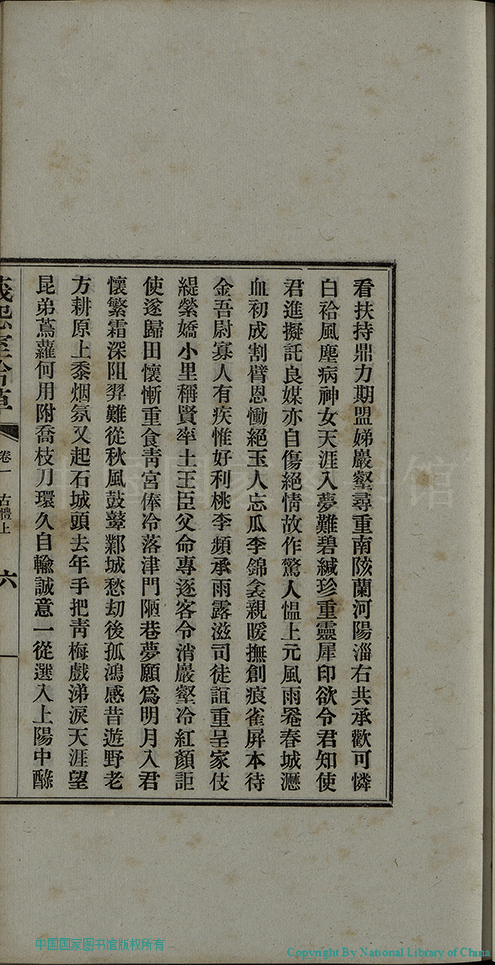 看扶持鼎力期盟娣嚴壑尋重南陔蘭河陽淄右共承歡可憐
白袷風塵病神女天涯入夢難碧緘珍重靈犀印欲令君知使
君進擬託良媒亦自傷絕情故作驚人慍上元風雨卷春城灑
血初成割臂恩慟絕玉人忘瓜李錦衾親暖撫創痕雀屏本待
金吾尉寡人有疾惟好利桃李頻承雨露滋司徒誼重呈家伎
緹縈嬌小里稱賢率土王臣父命專逐客令消嚴壑冷紅顏詎
使遂歸田懷慚重食靑宮俸冷落津門陋巷夢願爲明月入君
懷繁霜深阻羿難從秋風鼓鼙鄴城愁劫後孤鴻感昔遊野老
方耕原上黍烟氛又起石城頭去年手把靑梅戲涕淚天涯望
昆弟蔦蘿何用附喬枝刀環久自輸誠意一從選入上陽中酴
卷一 古體上
六
中国国家图书馆版权所有
Copyright By National Library of China